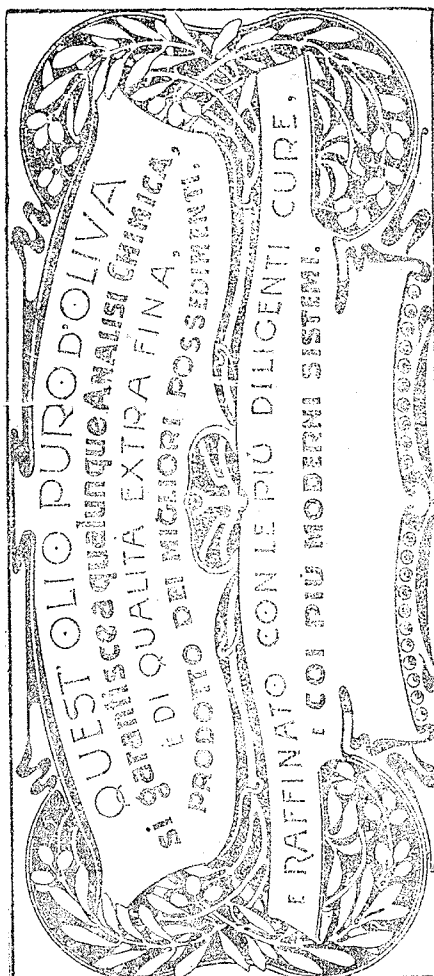 QUEST' OLIO PURO D'OLIVA
si garantisce a qualunque ANALISI CHIMICA,
È DI QUALITÀ EXTRA FINA,
PRODOTTO DEI MIGLIORI POSSEDIMENTI,
E RAFFINATO CON LE PIÙ DILIGENTI CURE,
E COI PIÙ MODERNI SISTEMI.